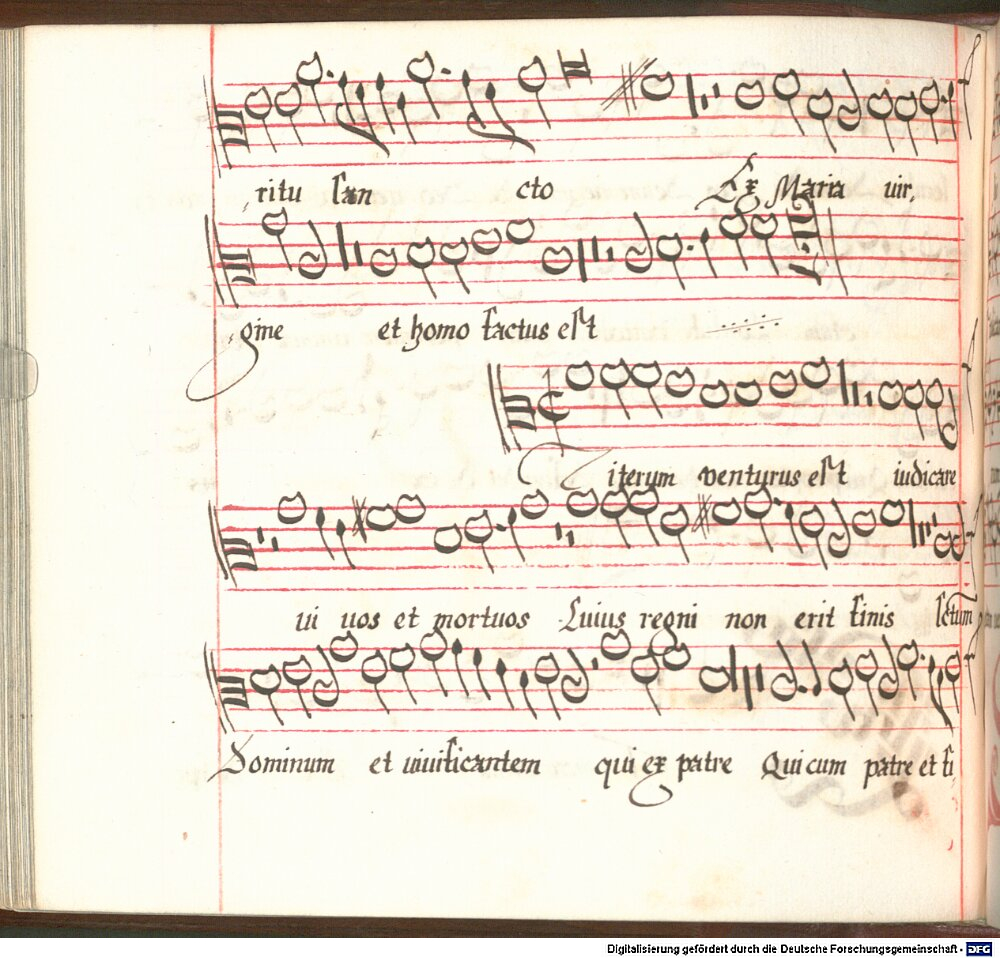 ritu san cto Ex Maria uir,
gine et homo factus est
iterum venturus est iudicare
ui uos et mortuos Cuius regni non erit finis sctum
Dominum et uiuificantem qui ex patre Qui cum patre et fi,
Digitalisierung gefördert durch die Deutsche Forschungsgemeinschaft - DFG